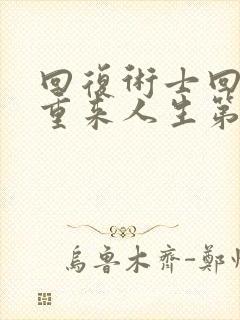 回復術士回
重来人生第
烏魯木齊-鄭州